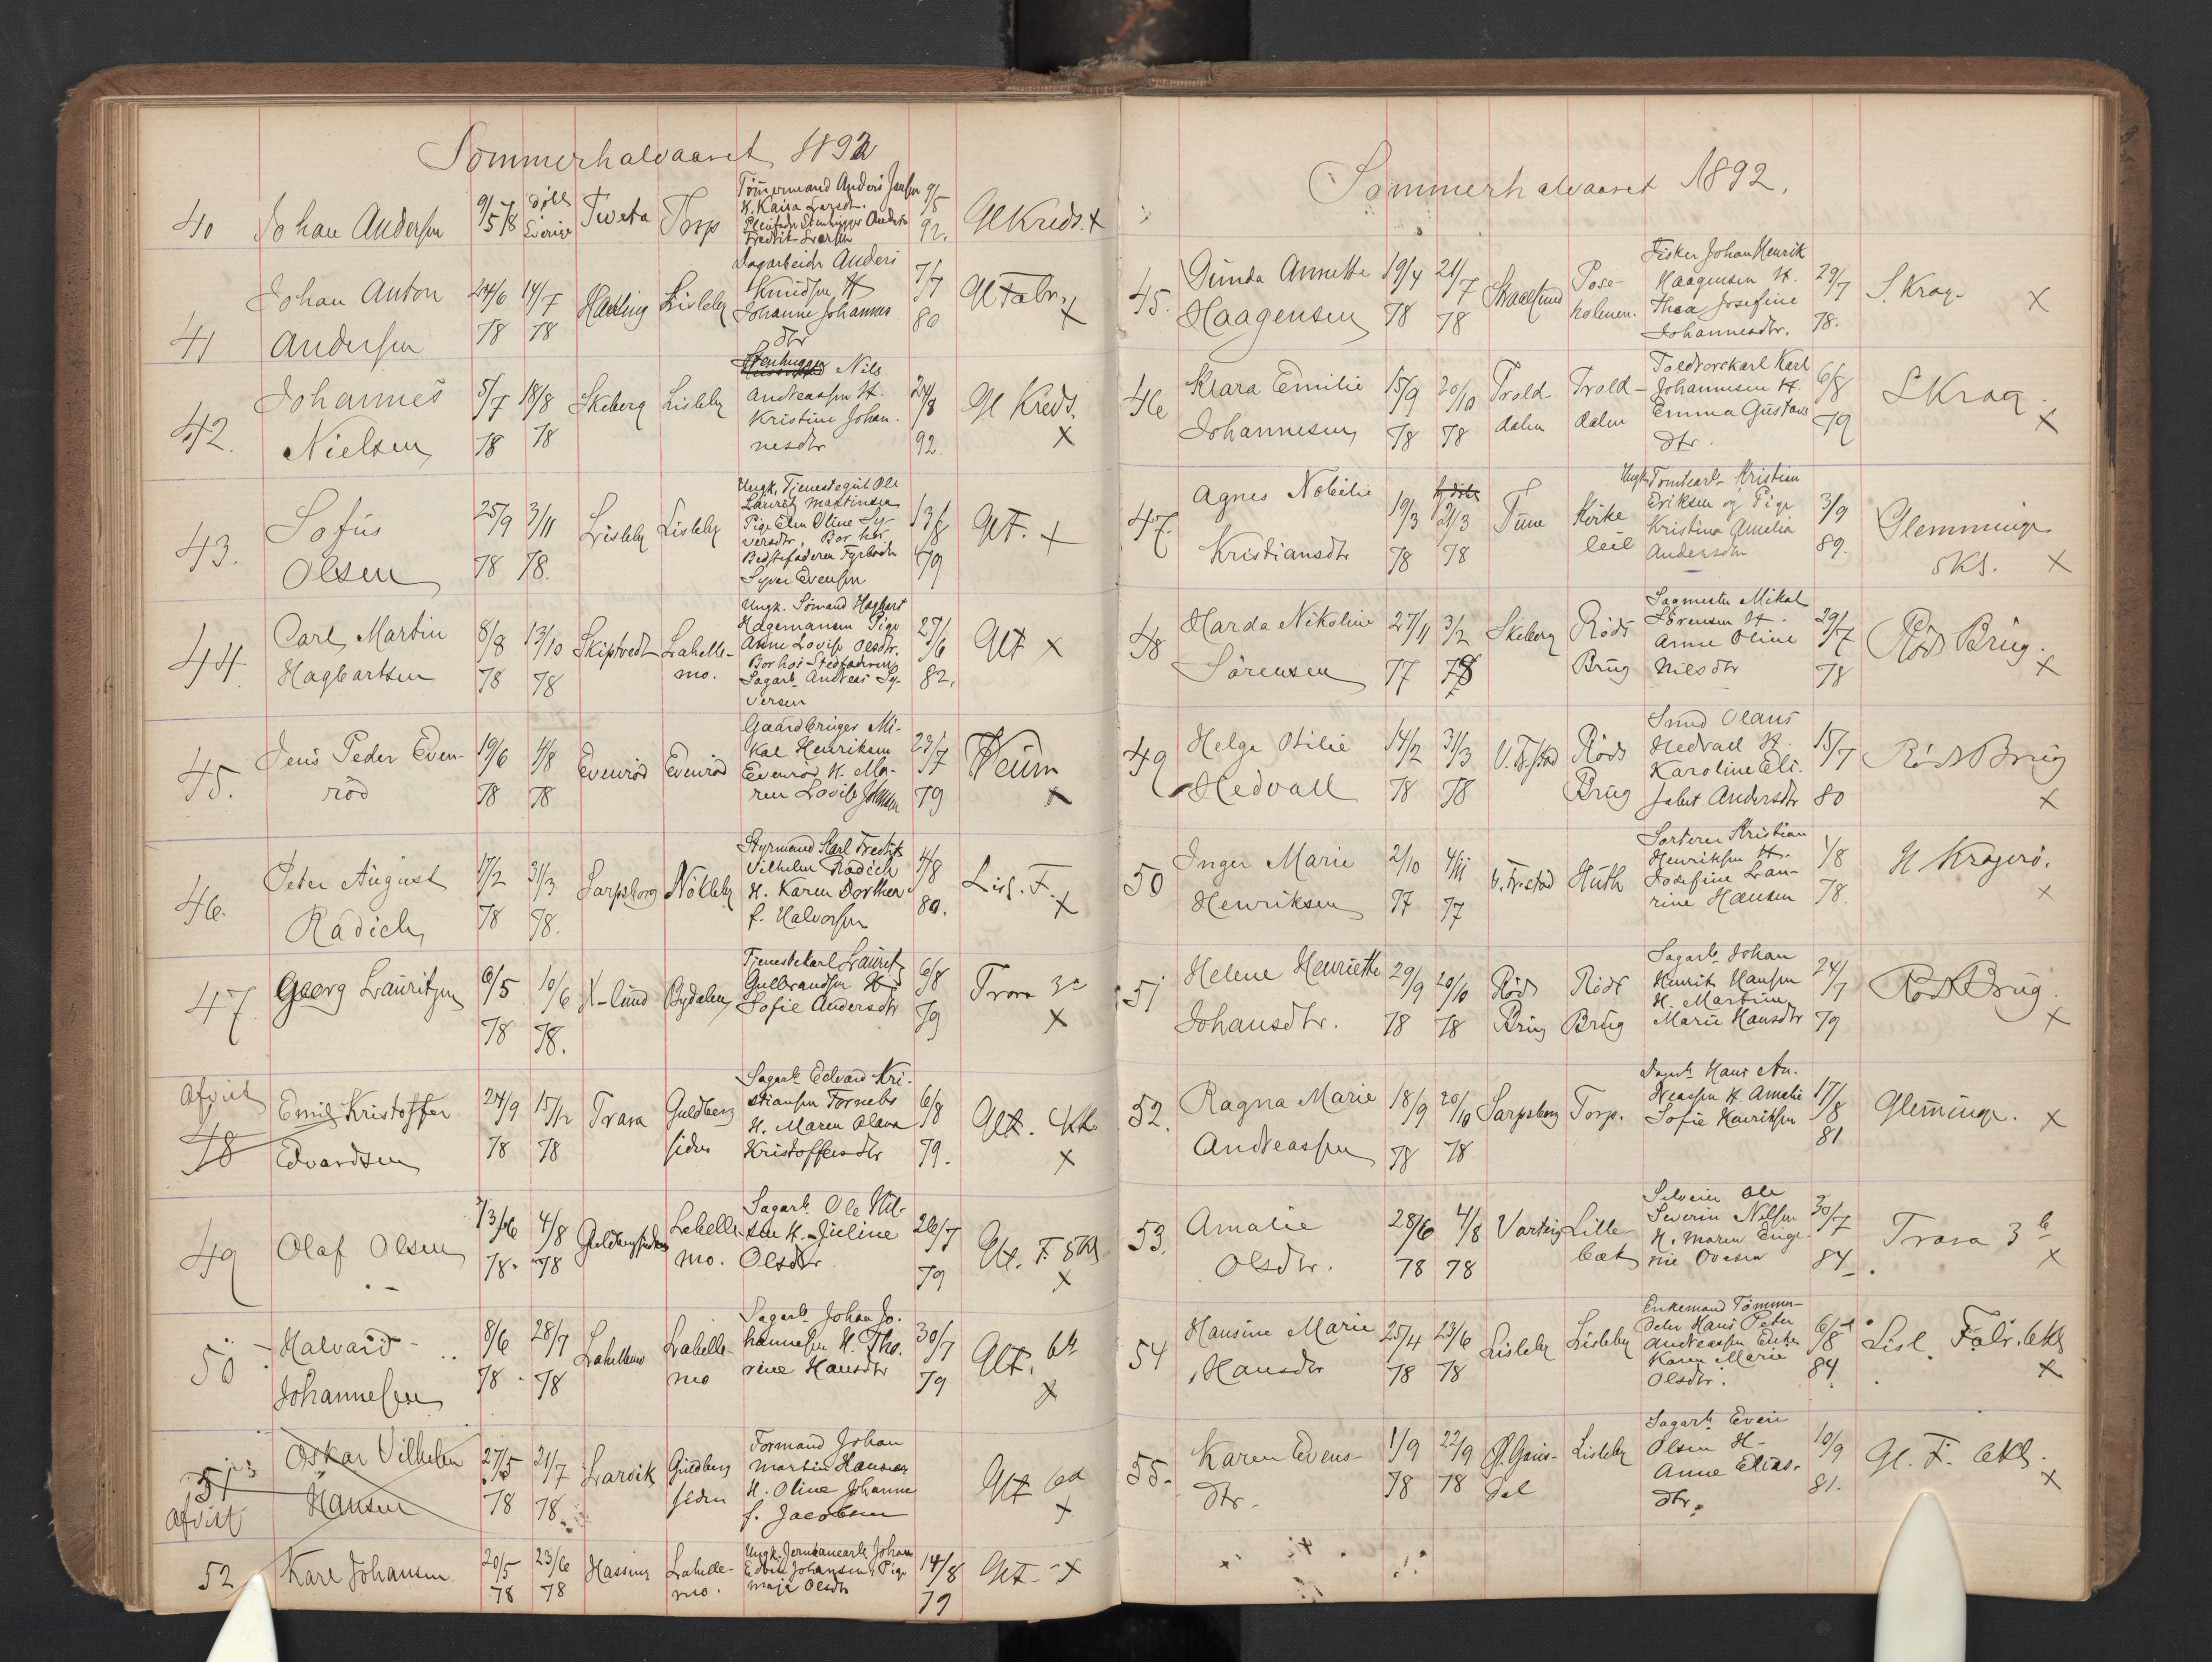 Sommerhalvaaret 1892
40 Johan Andersen 9/5 78 döbt Sverige Tveta Torp Tömmermand Anders Jansen H. Kaisa Larsdtr. Pleiefader Stenhugger Anders Fredrik Larsen 9/5 92. Gl Kreds. X
41 Johan Anton Andersen 24/6 78 14/7 78 Hasling Lisleby Dagarbeider Anders Knudsen H Johanne Johannesdtr 7/7 80 Gl Fabr. X
42. Johannes Nielsen 5/7 78 18/8 78 Skeberg Lisleby Stenhugger Nils Andreassen H. Kristine Johannesdtr 24/8 92. Gl Kreds. X
43. Sofus Olsen 25/9 78 3/11 78. Lisleby Lisleby Ungk. Tjenestegut Ole Lauritz Martinsen Pige Elen Oline Syversdtr, Bor hos Bedstefaderen Fyrböder Syver Evensen 13/8 79 Gl F. X
44. Carl Martin Hagbartsen 8/8 78 13/10 78 Skiptvedt Labellemo. Ungk. Sömand Hagbart Hagemansen Pige Anne Lovise Olsdtr. Bor hos Stedfaderen Sagarb. Andreas Syversen 27/6 82. Gl F X
45. Jens Peder Evenröd 19/6 78 4/8 78 Evenröd Evenröd Gaardbruger Mikal Henriksen Evenröd H. Maren Lovise Johnsen 23/7 79 Veum X
46. Peter August Radich 17/2 78 31/3 78. Sarpsborg Nökleby Styrmand Karl Fredrik Vilhelm Radich H. Karen Dorthea f. Halvorsen 4/8 80. Lisl. F. X
47. Georg Lauritzen 6/5 78 10/6 78. X-lund Bydalen Tjenestekarl Lauritz Gulbrandsen H Sofie Andersdtr 6/8 79 Trara 3e X
afvist 48 Emil Kristoffer Edvardsen 24/9 78 15/12 78 Trara Guldbergsiden Sagarb. Edvard Kristiansen Fornebo H. Maren Olava Kristoffersdtr 6/8 79. Gl F. 4kl. X
49 Olaf Olsen 13/6 78. 4/8 78 Guldbergsiden Labellemo. Sagarb. Ole Nilsen H. Juline Olsdtr. 26/7 79 Gl. F. 5kl X
50. Halvard Johannesen 8/6 78. 28/7 78 Labellemo Labellemo Sagarb. Johan Johannesen H. Thorine Hansdtr 30/7 79 Gl F. 6kl X
51 afvist Oskar Vilhelm Hansen 27/5 78 21/7 78. Larvik Guldbergsiden Formand Johan Martin Hansen H. Oline Johanne f. Jacobsen Gl F 6kl X
52 Karl Johansen 20/5 78 23/6 78 Hassing Labellemo. Ungk. Jernbanearb. Johan Edvin Johansen, Pige Maja Olsdtr 14/8 79 Gl F X
Sommerhalvaaret 1892.
45. Gunda Annette Haagensen 19/4 78 21/7 78 Skaalsund Posekolenen. Fisker Johan Henrik Haagensen H. Thea Josefine Johannesdtr. 29/7 78. S. Krag. X
46 Klara Emilie Johannesen 15/9 78 20/10 78 Trolddalen Trolddalen Toldrorskarl Karl Johannesen H. Emma Gustavsdtr. 6/8 79 S Krag. X
47. Agnes Nobilie Kristiansdtr 19/3 78 21/3 78 Tune Kirkeleil Ungk Tomtearb. Kristian Eriksen og Pige Kristina Amelia Andersdtr 3/9 89. Glemminge skl. X
48 Harda Nikoline Sörensen 27/11 77 3/2 78 Skeberg Röds Brug Sagmester Mikal Sörensen H. Anne Oline Nilsdtr 29/7 78 Röds Brug. X
49 Helga Otilie Hedvall 14/2 78 31/3 78 V. Fr.stad Röds Brug Smed Olaus Hedvall H. Karoline Elisabet Andersdtr 15/7 80 Röds Brug X
50 Inger Marie Henriksen 2/10 77 4/11 77 V. Fr.stad Huth Sorterer Kristian Henriksen H. Josefine Laurine Hansen 1/8 78. N Kragerö. X
51 Helene Henriette Johansdtr. 29/9 78 20/10 78 Röds Brug Röds Brug Sagarb. Johan Henrik Hansen H. Martine Marie Hansdtr 24/7 79 Röds Brug. X
52. Ragna Marie Andreassen 18/9 78 20/10 78 Sarpsborg Torp. Dagarb. Hans Andreassen H. Amalie Sofie Henriksen 17/8 81 Glemminge. X
53. Amalie Olsdtr. 28/6 78 4/8 78 Varteig Lillebæk Selveier Ole Severin Nilsen H. Maren Eugenie Ovesen 30/7 84. Trara 3die X
54 Hansine Marie Hansdtr 25/4 78 23/6 78 Lisleby Lisleby Enkemand Tömmerdeler Hans Peter Andreassen Enken Karen Marie Olsdtr. 6/8 84 Lisl. Fabr. 6kl X
55. Karen Evensdtr. 1/9 78 22/9 78 Ö. Gausdal Lisleby Sagarb. Even Olsen H. Anne Eliasdtr. 10/9 81. Gl. F. 6kl. X